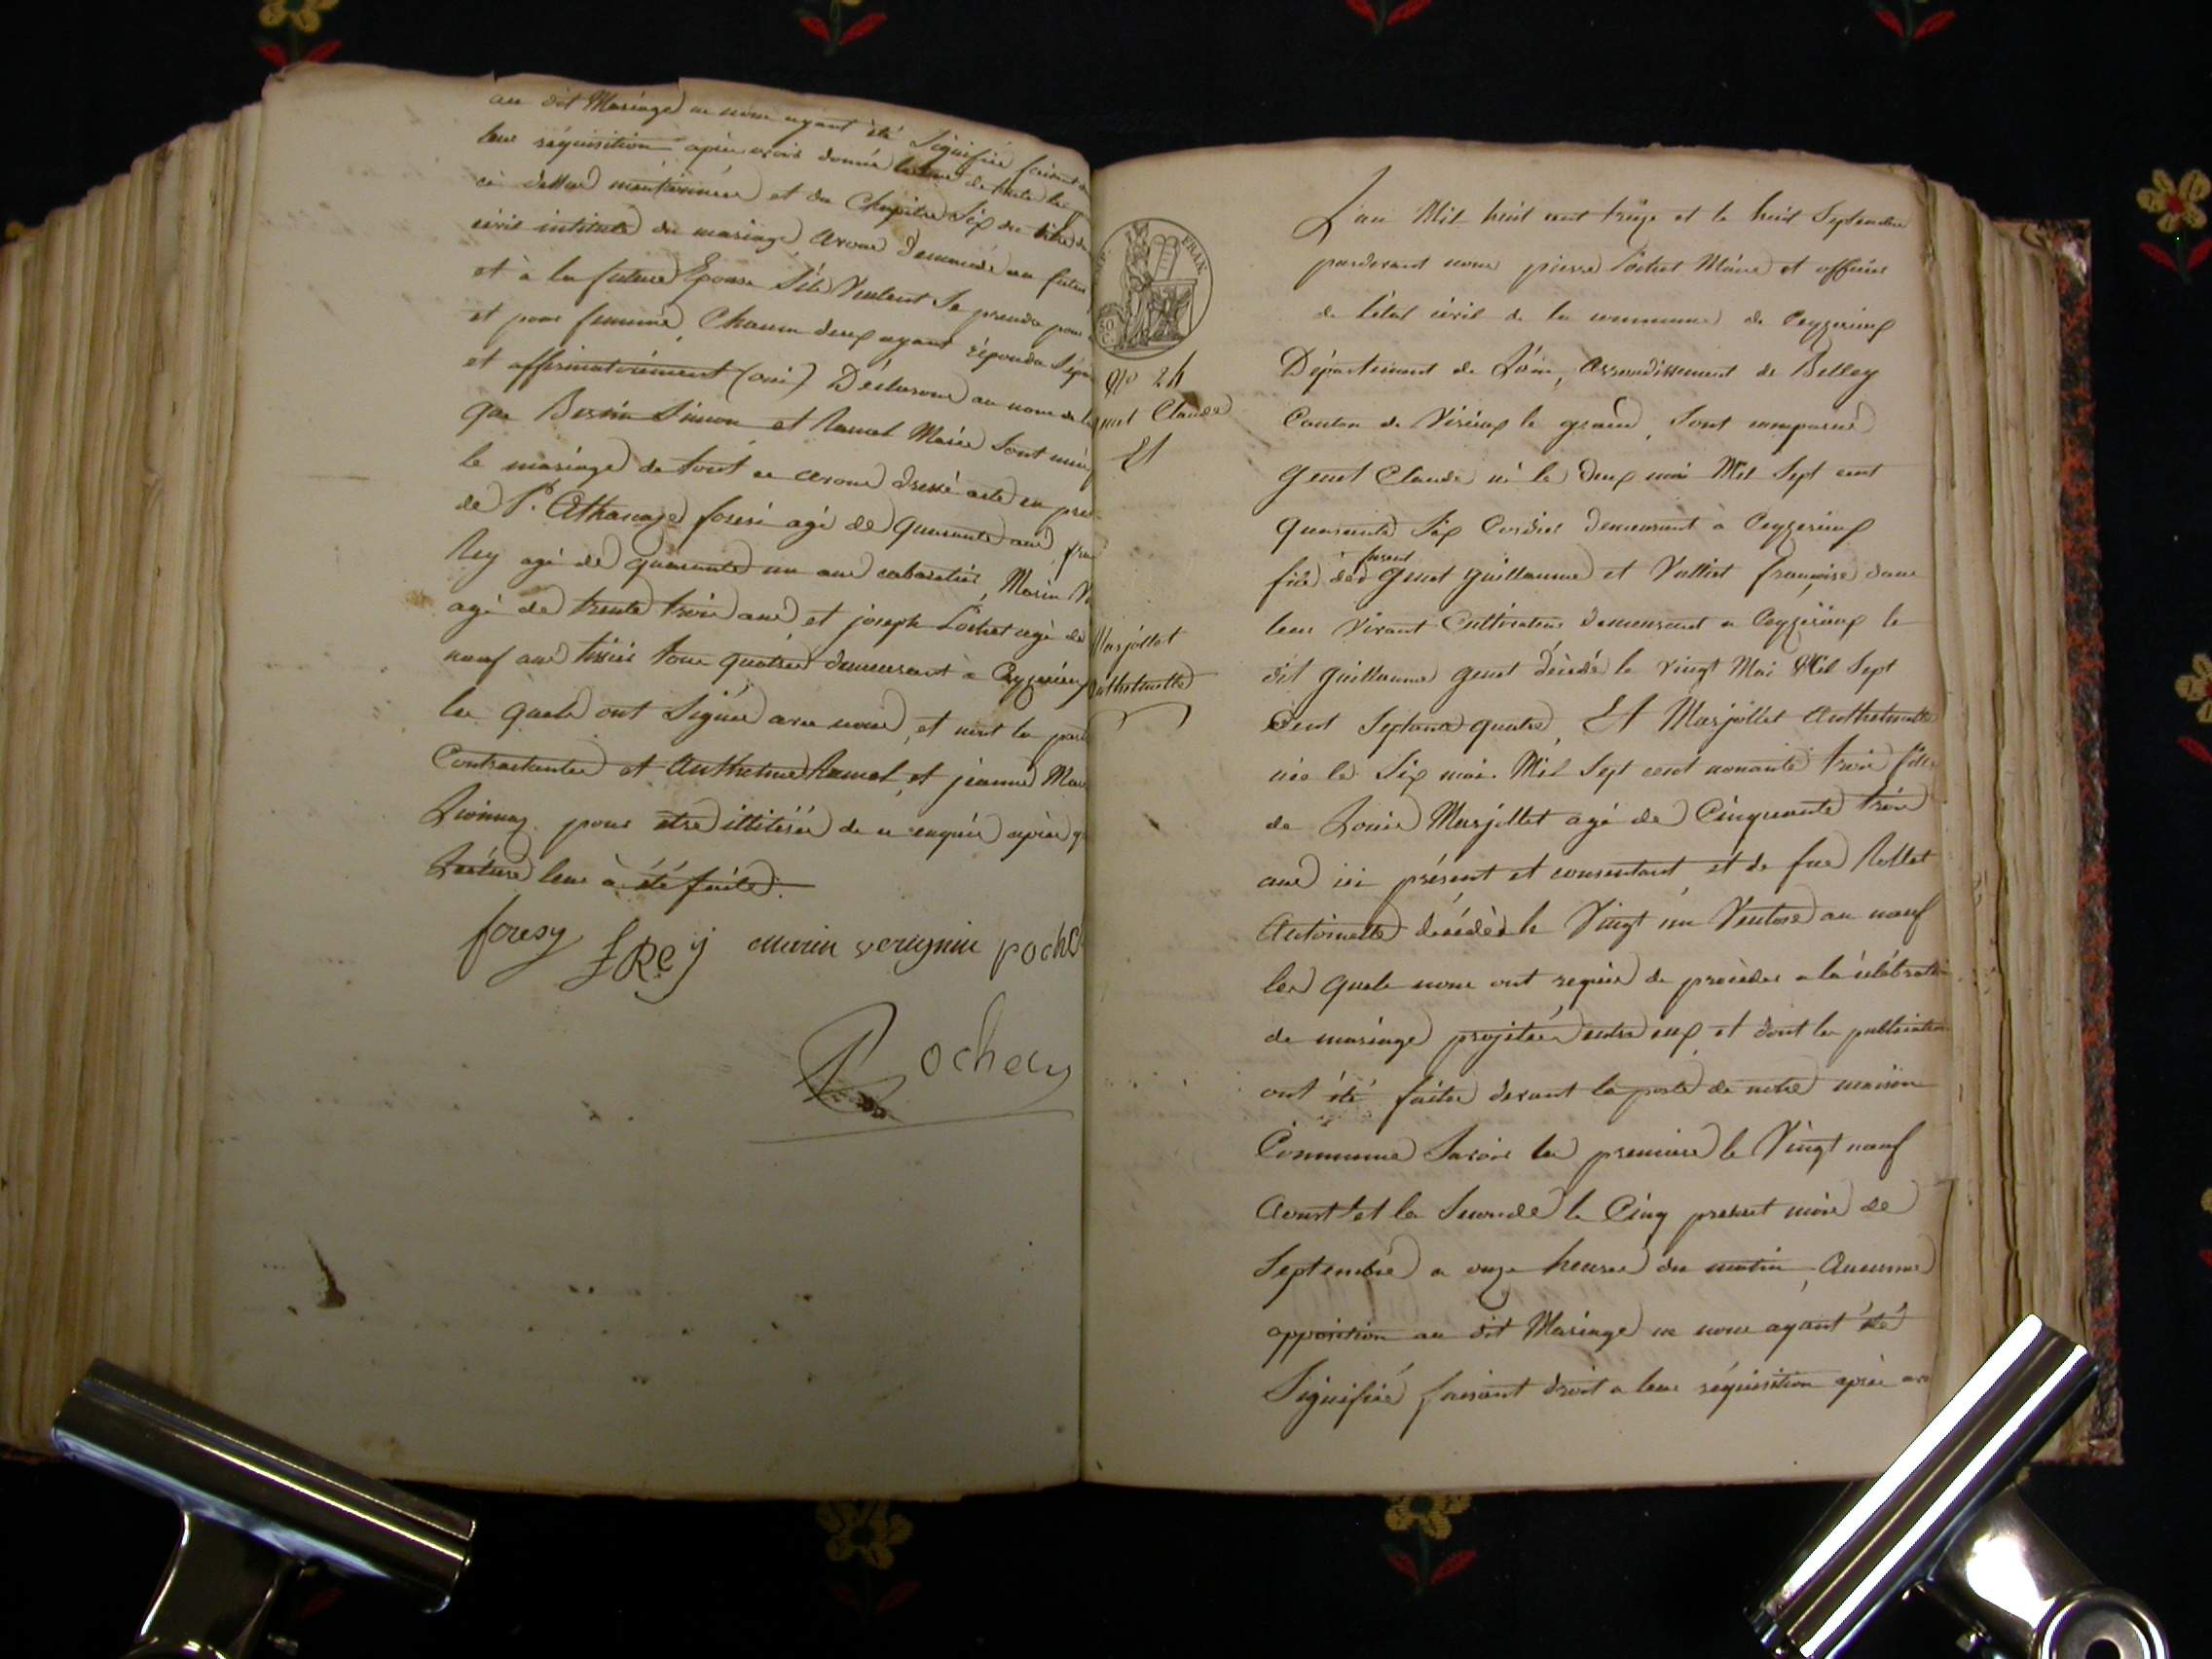 au dit Mariage ne nous ayant été Signifiée faisant
leur réquisition après avoir donné lecture de toute les
ci dessus mentionnées et du Chapitre Six du titre du
civil intitulé du mariage, avons demandé au futur
et à la future Epouse S'ils Veulent Se prendre pour
et pour femme, Chacun deux ayant répondu Sépa
et affirmativement (oui) Déclarons au nom de la
que Simon et Ramel Marie Sont unis
le mariage de tout ce avons dressé acte en pré
de Sr. Athanaze foresi agé de quarante ans
Rey agé de quarante un ans cabaretier, Marin
agé de trente trois ans, et joseph Pochet agé de
neuf ans tissier tous quatre demeurant à Ceyzerieux
les quels ont Signés avec nous, et nont les par
Contractantes et Anthelme Ramel, et jeanne Mar
pour etre illitérés de ce enquis après q
Lecture leur à été faite.
foresy fRey marin verugnin poche
Pochet
L'an Mil huit cent treize et le huit Septembre
pardevant nous pierre Pochet Maire et officier
de l'état civil de la commune de Ceyzerieux
Département de L'ain, Arrondissement de Belley
Canton de Virieux le grand, Sont comparus
genet Claude né le deux mai Mil Sept cent
quarante Six Cordier demeurant à Ceyzerieux
furent
fils des genet guillaume et Valliet françoise dans
leur Vivant Cultivateur demeurant a Ceyzerieux le
dit guillaume genet décédé le vingt Mai Mil Sept
Cent Septante quatre, Et Marjollet Anthelmette
née le Six mai Mil Sept cent nonante trois fille
de Louis Marjollet agé de Cinquante trois
ans ici présent et consentant et de fue Rollet
Antoinette décédée le Vingt un Ventose an neuf
les quels nous ont requis de procèder a la célébration
de mariage projetée entre eux et dont les publications
ont été faites devant la porte de notre maison
Commune Savoir la premiere le Vingt neuf
Aoust et la Seconde le Cinq présent mois de
Septembre a onze heures du matin, Aucunne
opposition au dit Mariage ne nous ayant été
Signifiée faisant droit a leur réquisition après avo
FRAN.
50
No 24
genet Claude
Et
Marjollet
Anthelmette